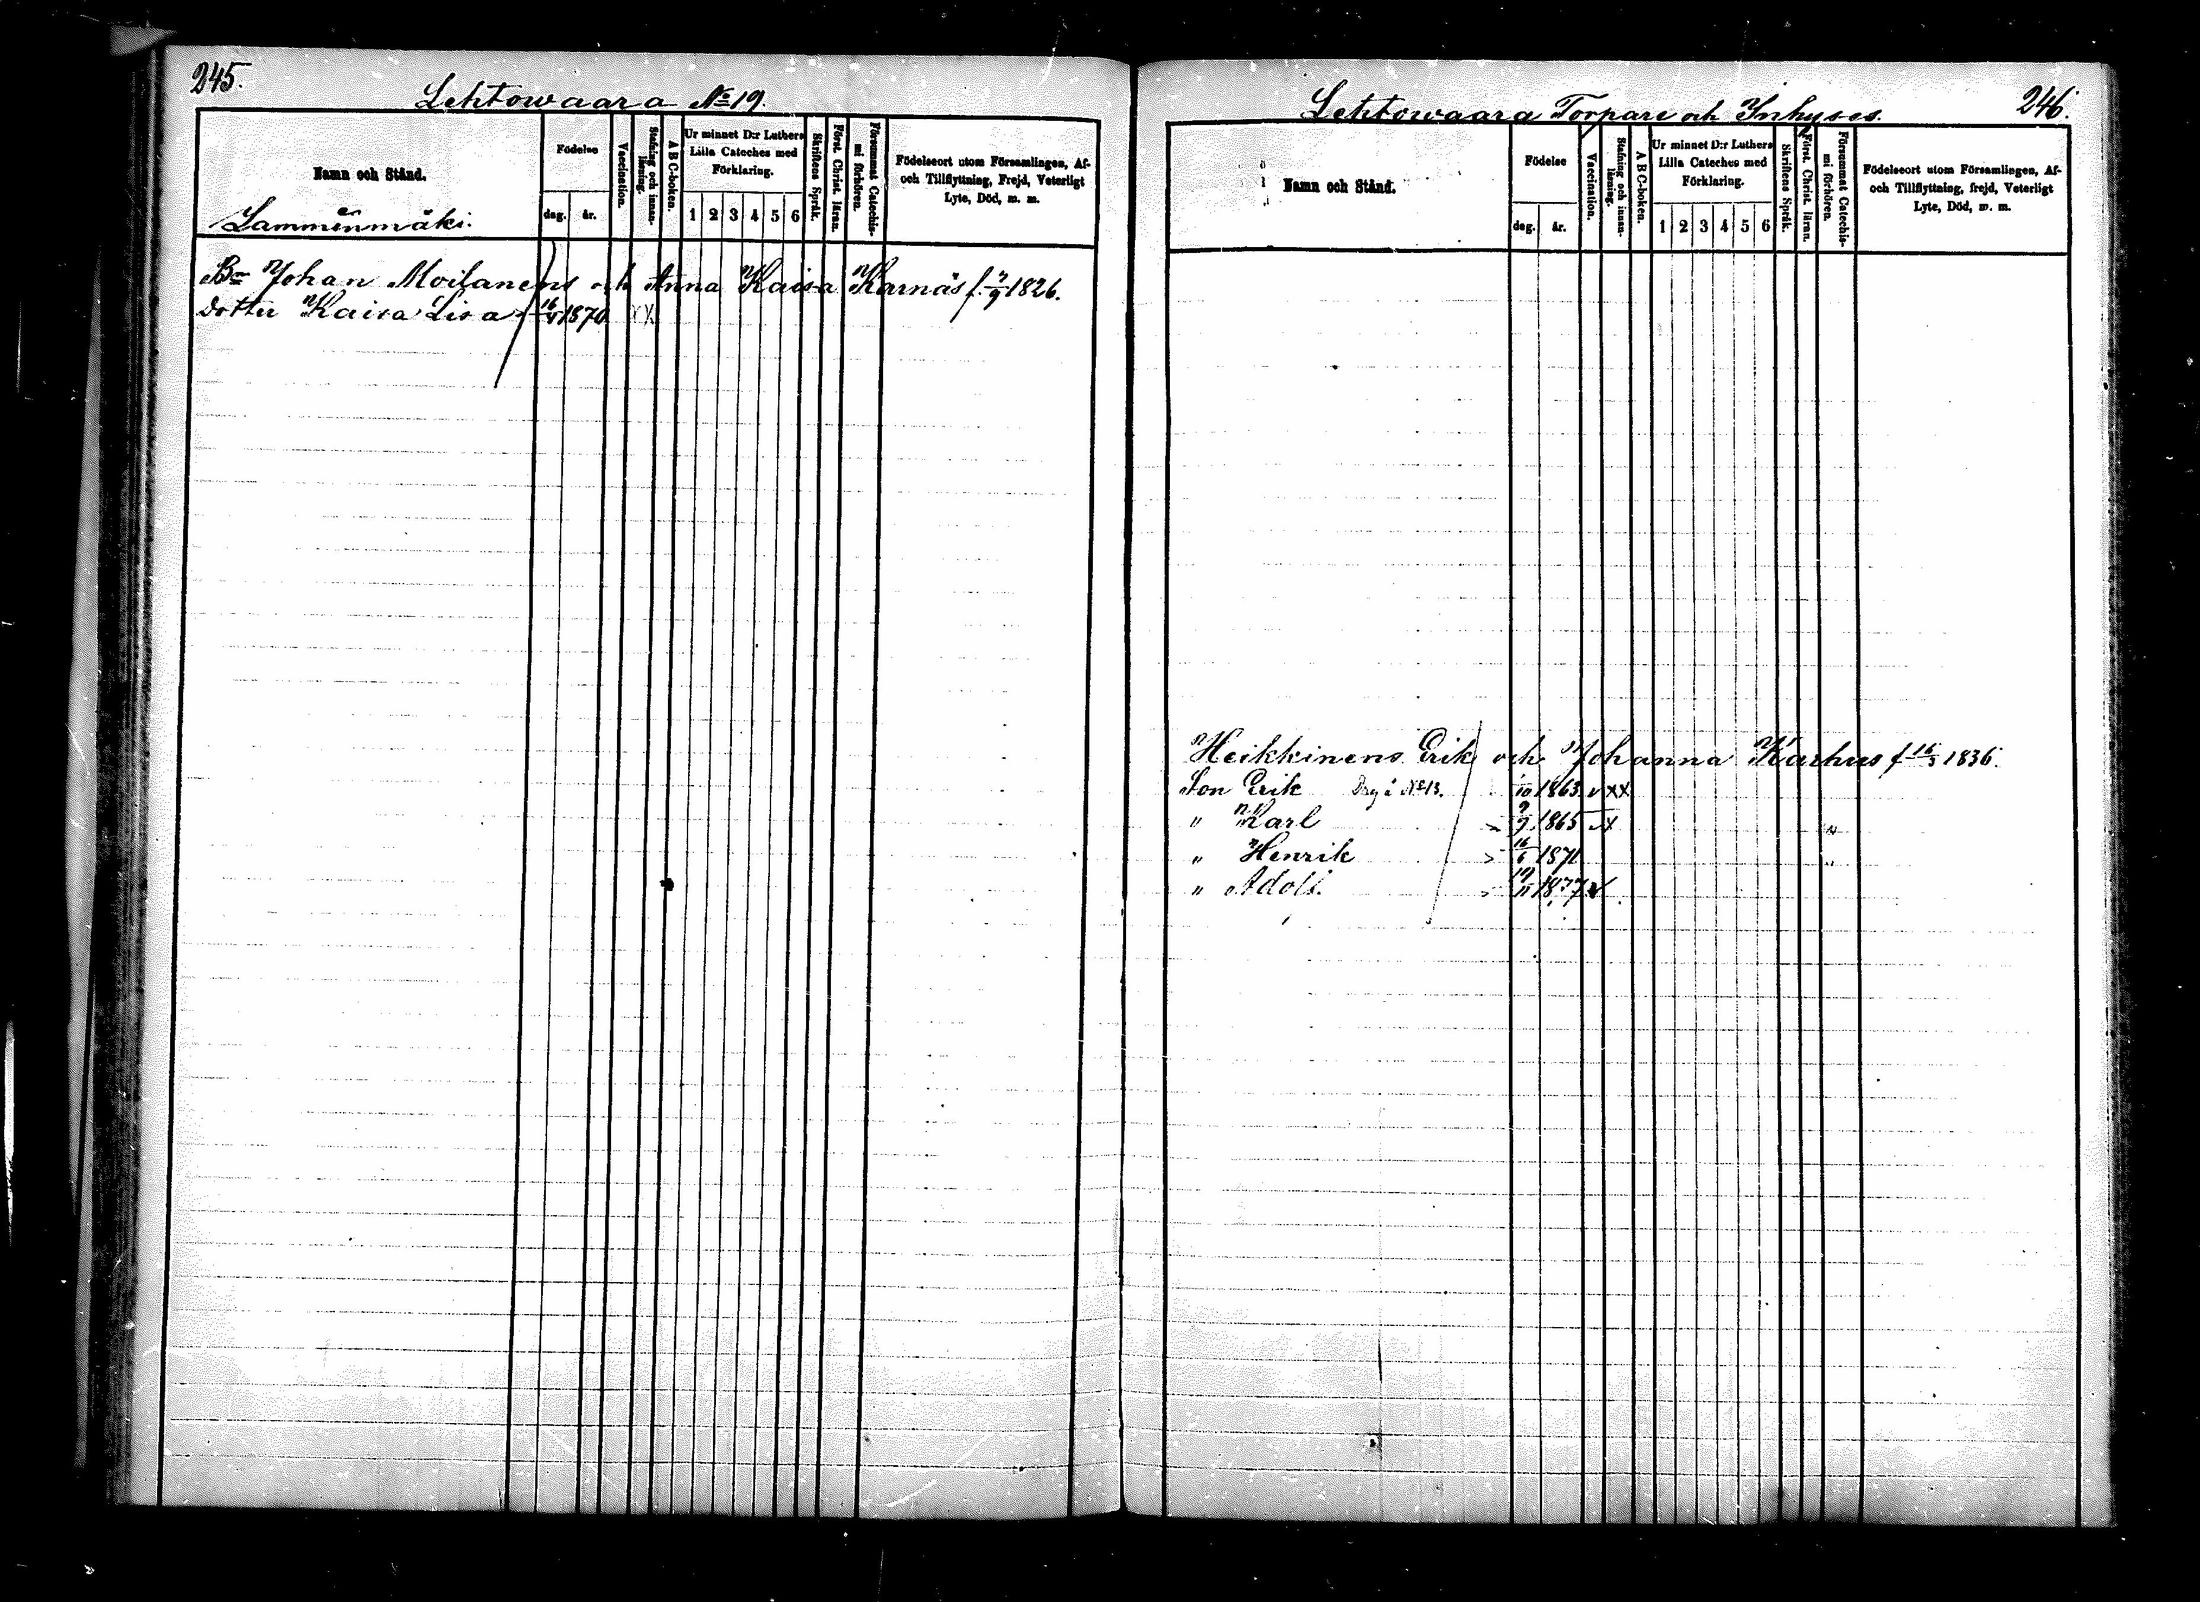 245.
Lehtowaara No 19.
Namn och Stånd.
Födelse
dag.
år.
Vaccination.
Stafning och innan-läsning.
A B C-boken.
Ur minnet D:r Luthers
Lilla Cateches med
Förklaring.
1 2 3 4 5 6
Skriftens Språk.
Först. Christ. läran.
Försummat Catechis-mi förhören.
Födelseort utom Församlingen, Af-
och Tillflyttning, Frejd, Veterligt
Lyte, Död, m. m.
Lammenmäki.
Bn Johan Moilanens och Anna Kaisa Karnäs f. 7/9 1826.
Dotter Kaisa Lisa 16/4 1870 XX
246.
Lehtowaara Torpare och Inhyses.
Namn och Stånd.
Födelse
dag.
år.
Vaccination.
Stafning och innan-läsning.
A B C-boken.
Ur minnet D:r Luthers
Lilla Cateches med
Förklaring.
1 2 3 4 5 6
Skriftens Språk.
Först. Christ. läran.
Försummat Catechis-mi förhören.
Födelseort utom Församlingen, Af-
och Tillflyttning, frejd, Veterligt
Lyte, Död, m. m.
Heikkinens Erik och Johanna Karhus f 16/5 1836.
Son Erik Drg å No 13. 1863 v XX
" Karl 9/9 1865 v X
" Henrik 16/6 1871
" Adolf. 19/11 1877 v